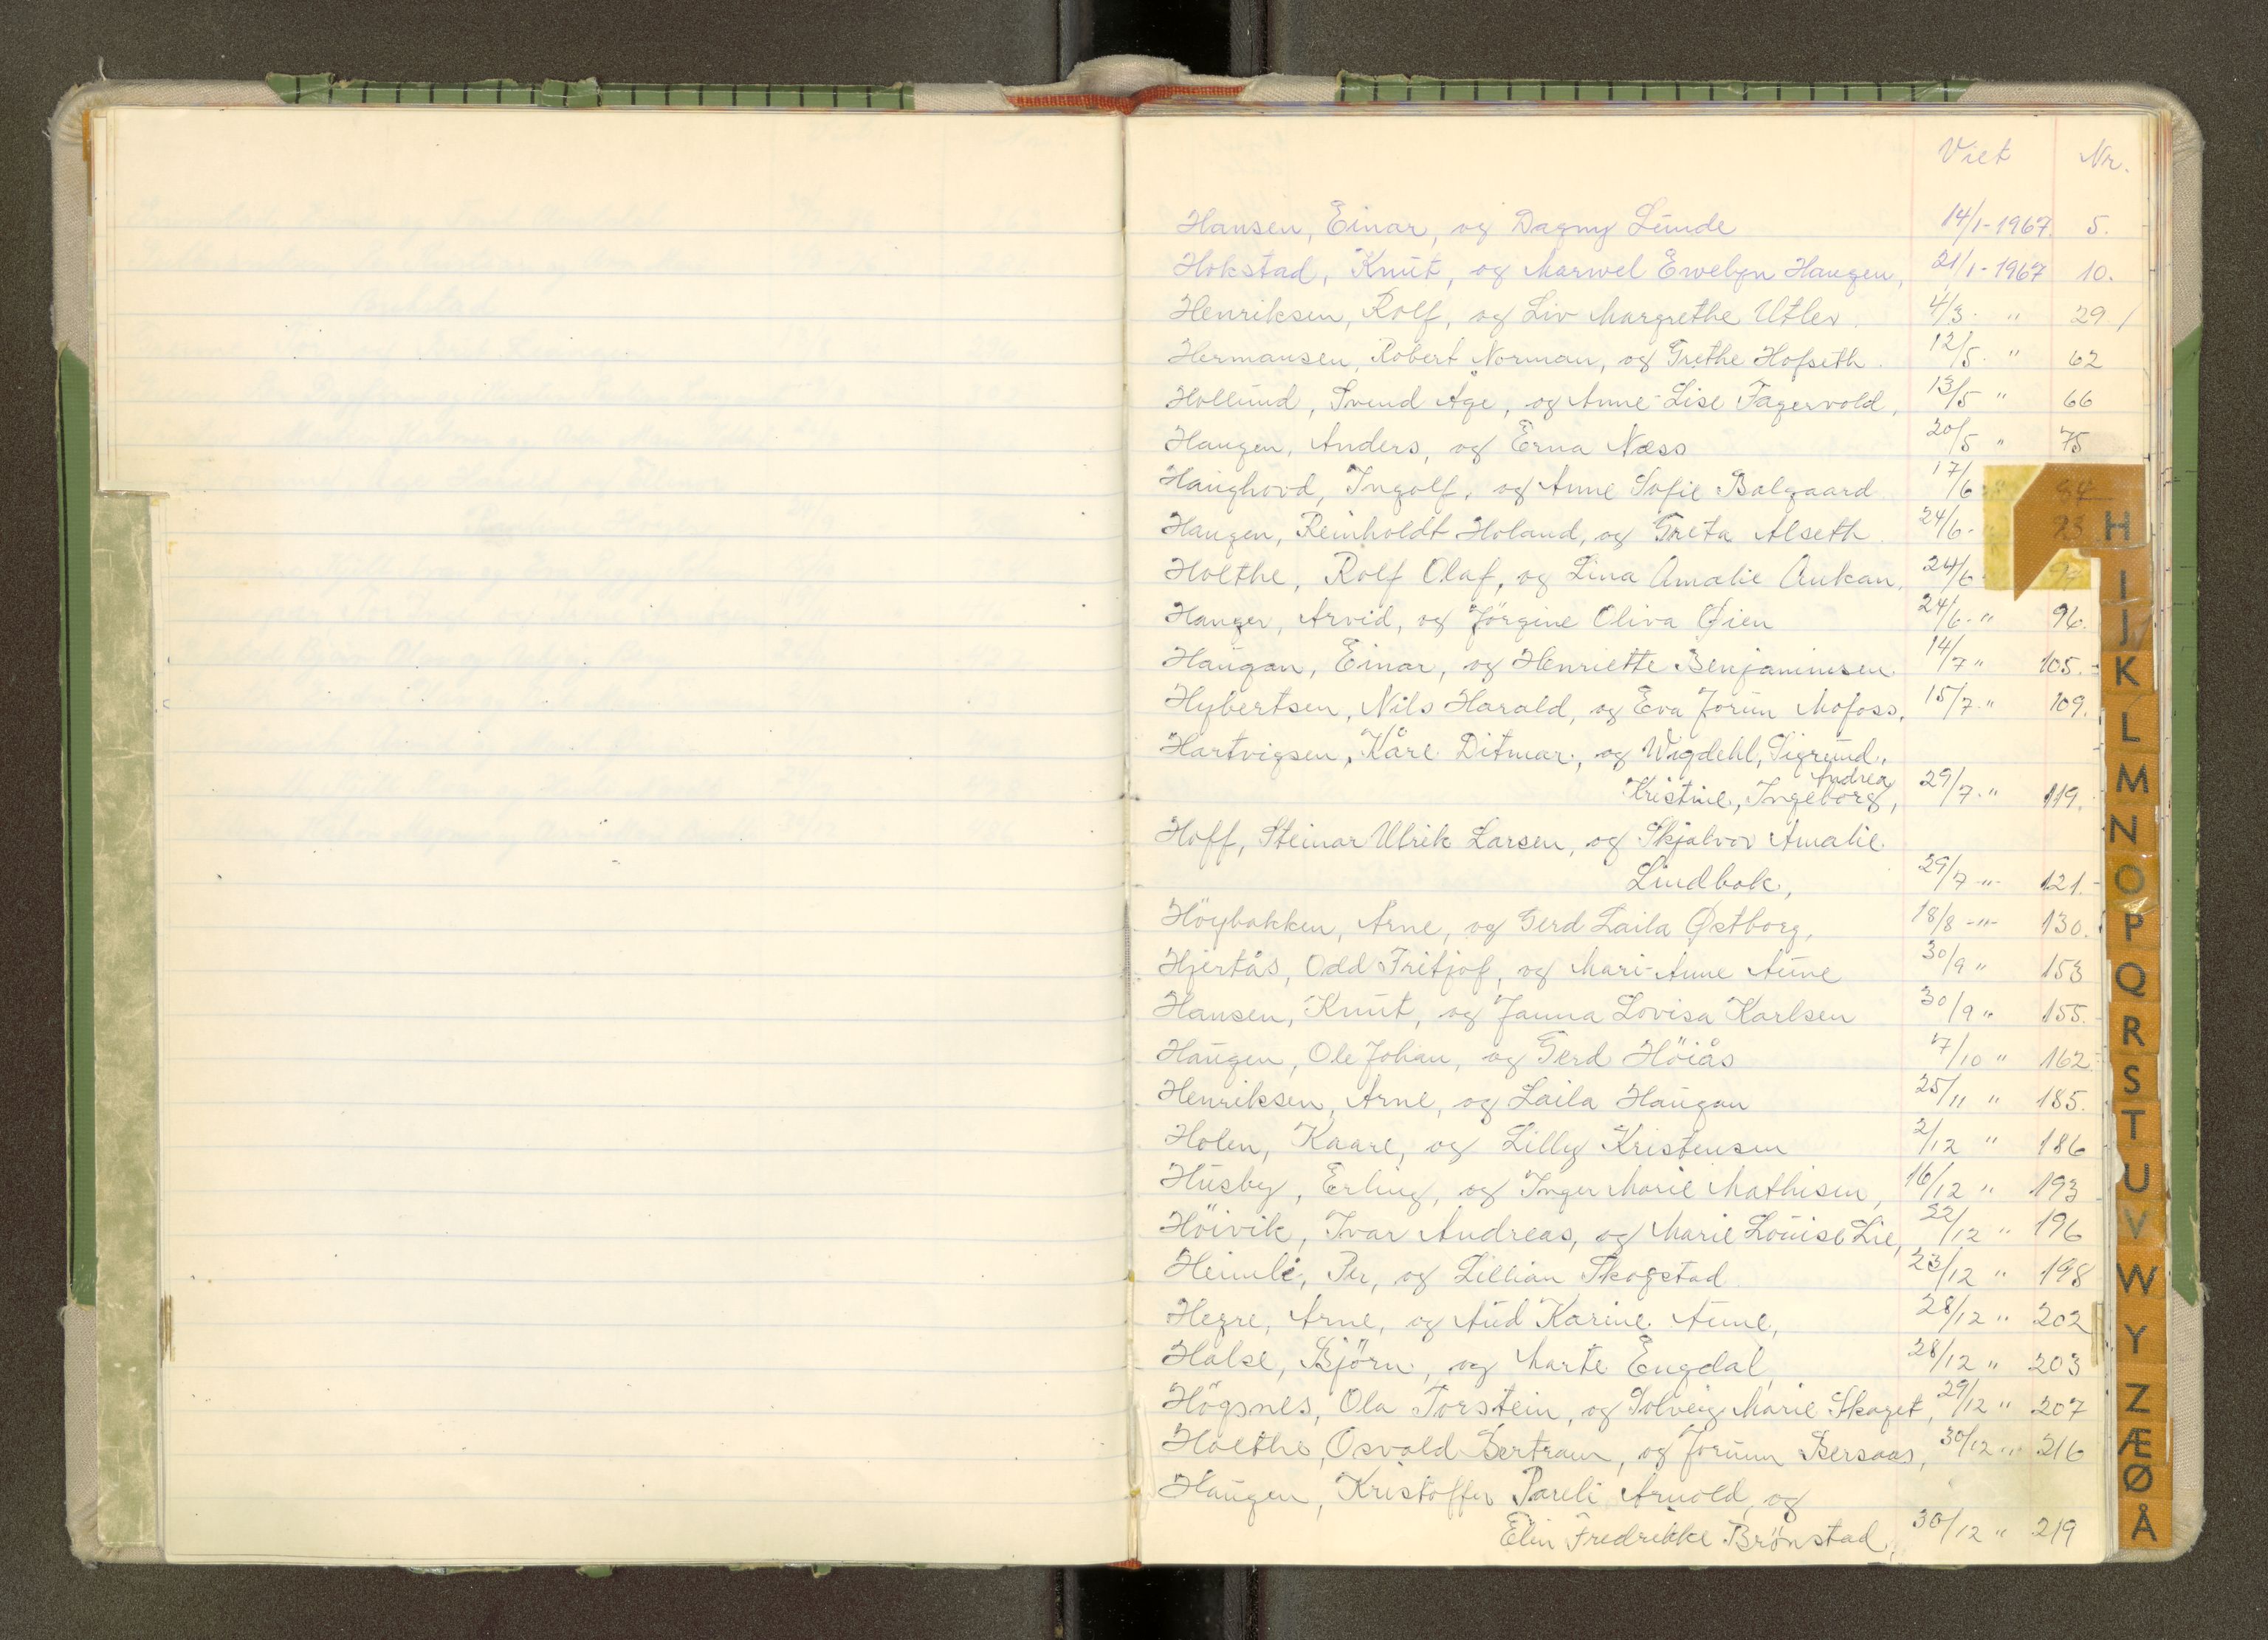 Viet Nr.
Hansen, Einar, og Dagny Lunde 14/1-1967. 5.
Hokstad, Knut, og Marwel Ewelyn Haugen, 21/1-1967 10.
Henriksen, Rolf, og Liv Margrethe Utler. 4/3. " 29. /
Hermansen, Robert Norman, og Grethe Hofseth. 12/5. " 62
Hollund, Svend Åge, og Anne-Lise Fagervold, 13/5 " 66
Haugen, Anders, og Erna Næss 20/5 " 75
Haughovd, Ingolf, og Anne Sofie Balgaard 17/6 " 84
Haugen, Reinholdt Holand, og Greta Alseth. 24/6- 93
Holthe, Rolf Olaf, og Lina Amalie Aukan, 24/6-
Hanger, Arvid, og Jörgine Oliva Øien 24/6-" 96.
Haugan, Einar, og Henriette Benjaminsen. 14/7 " 105.-
Hybertsen, Nils Harald, og Eva Jorun Mofoss, 15/7." 109.
Hartvigsen, Kåre Ditmar, og Wigdehl, Sigrund,
Andrea
Kristine, Ingeborg, 29/7." 119.
Hoff, Steinar Ulrik Larsen, og Skjalvor Amalie
Lindbak, 29/7-"- 121.-
Höybakken, Arne, og Gerd Laila Østborg, 18/8-"- 130.
Hjertås, Odd Fritjof, og Mari-Anne Aune 30/9 " 153
Hansen, Knut, og Janna Lovisa Karlsen 30/9 " 155.
Haugen, Ole Johan, og Gerd Höiås 7/10 " 162
Henriksen, Arne, og Laila Haugan 25/11 " 185.
Holen, Kaare, og Lilly Kristensen 2/12 " 186
Husby, Erling, og Inger Marie Mathisen, 16/12 " 193
Höivik, Ivar Andreas, og Marie Louise Lie, 22/12 " 196
Heimli, Per, og Lillian Skogstad 23/12 " 198
Hegre, Arne, og Aud Karine Aune, 28/12 " 202
Halse, Björn, og Marte Engdal, 28/12 " 203
Högsnes, Ola Torstein, og Solveig Marie Skaget, 29/12 " 207
Holthe, Osvald Bertram, og Jorunn Bersaas, 30/12 " 216
Haugen, Kristoffer Pareli Arnold, og
Elin Fredrikke Brönstad, 30/12 " 219
H
I
J
K
L
M
N
O
P
Q
R
S
T
U
V
W
Y
Z
Æ
Ø
Å